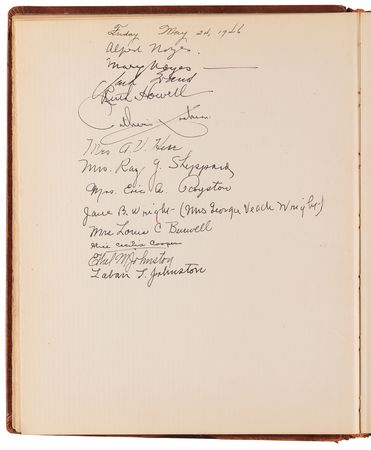 Friday May 24, 1946
Alfred Noyes.
Mary Noyes
Ruth Howell
Mrs A. V.
Mrs. Ray J. Sheppard
Mrs. Eric A. Royston
Jane B. Wright (Mrs George Veach Wright)
Mrs Louis C Burwell
Miss Cecilia Cooper
Ethel M Johnston
Laban T. Johnston